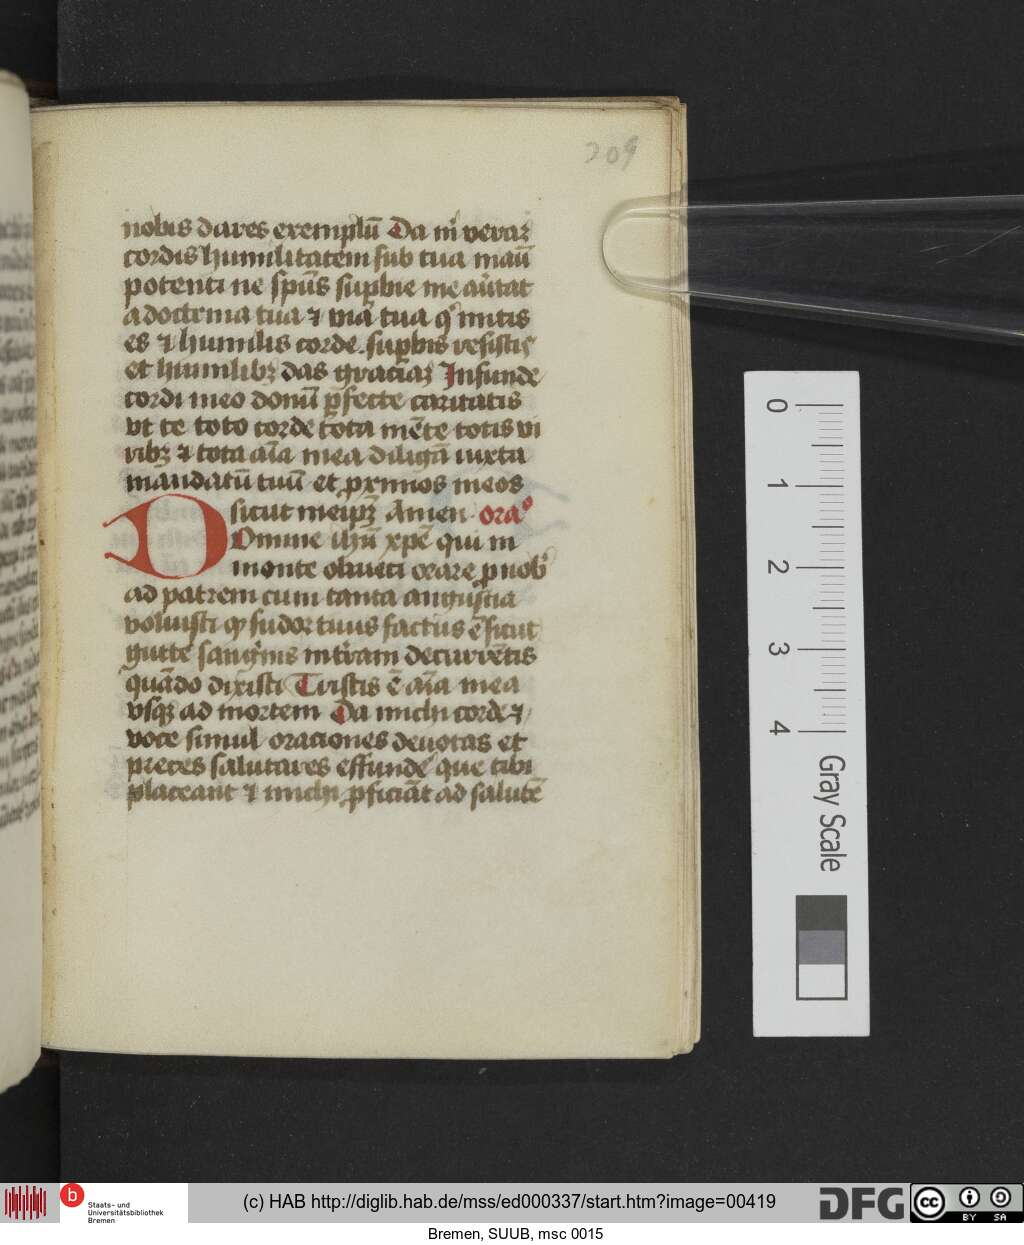 209
nobis dares exemplū Da m̄ veraꝫ
cordis humilitatem sub tua manū
potenti ne spūs supbie me aūtat
a doctrina tua ⁊ viā tua qͥ mitis
es ⁊ humilis corde. supbis resistis
et humilibꝫ das graciaꝫ Infunde
cordi meo donū pfecte caritatis
vt te toto corde tota mēte totis vi
ribꝫ ⁊ tota aīa mea diligā iuxta
mandatū tuū et pxmos meos
sicut meipꝫ Amen oraͦ
DOmine ihū xp̄e qui in
monte oliueti orare p nobˀ
ad patrem cum tanta angustia
voluisti qp sudor tuus factus ē sicut
gutte sangͥnis in trām decurrētis
quādo dixisti Tristis ē aīa mea
vsqꝫ ad mortem Da michi corde ⁊
voce simul oraciones deuotas et
preces salutares effunde que tibi
placeant ⁊ michi pficiāt ad salutē
0
1
2
3
4
Gray Scale
b
Staats- und
Universitätsbibliothek
Bremen
(c) HAB http://diglib.hab.de/mss/ed000337/start.htm?image=00419
DFG
cc
BY
SA
Bremen, SUUB, msc 0015